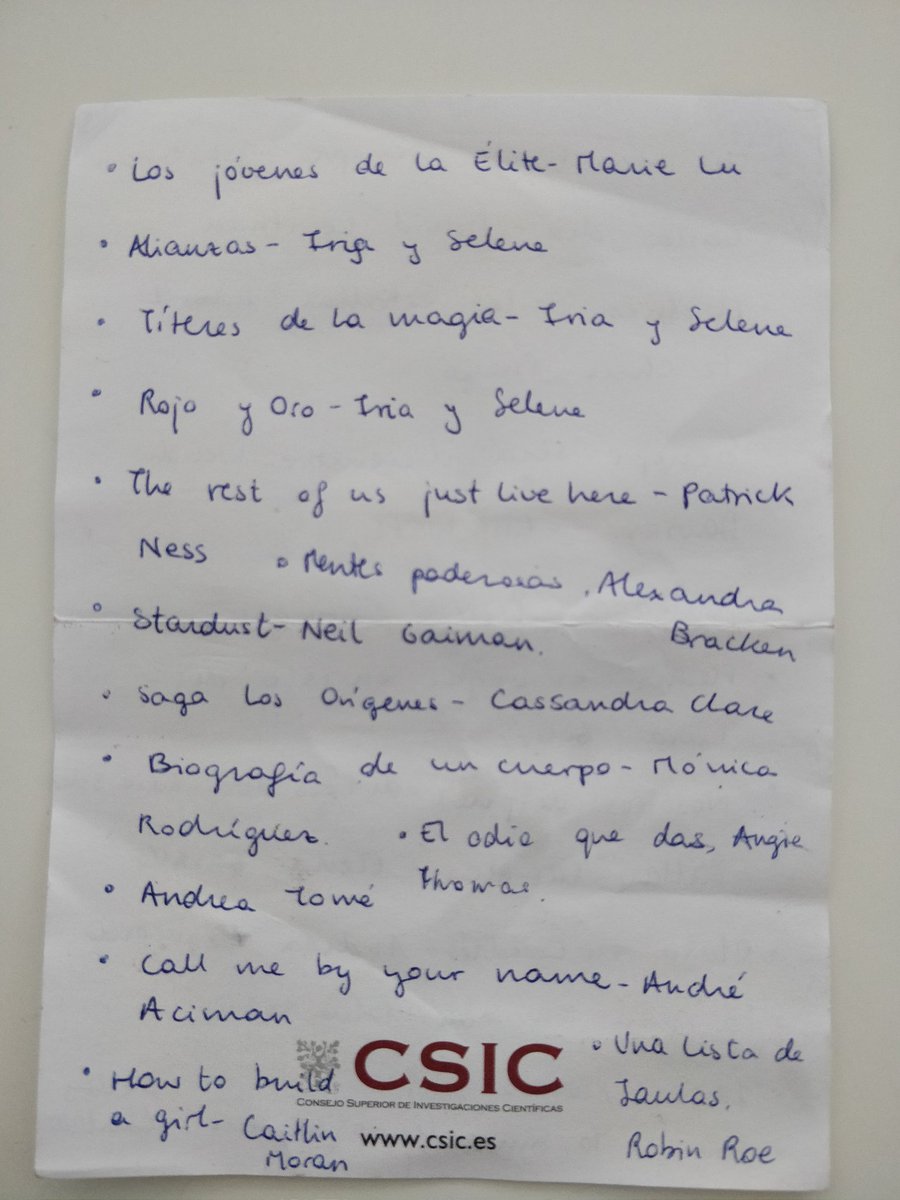 • Los jóvenes de la Élite - Marie Lu
• Alianzas - Iria y Selene
• Títeres de la magia - Iria y Selene
• Rojo y Oro - Iria y Selene
• The rest of us just live here - Patrick
Ness
• Mentes poderosas, Alexandra
Bracken
• Stardust - Neil Gaiman.
• Saga Los Orígenes - Cassandra Clare
• Biografía de un cuerpo - Mónica
Rodríguez.
• El odio que das, Angie
Thomas.
• Andrea Tomé
• Call me by your name - André
Aciman
• Una lista de
Jaulas.
Robin Roe
• How to build
a girl - Caitlin
Moran
CSIC
CONSEJO SUPERIOR DE INVESTIGACIONES CIENTÍFICAS
www.csic.es